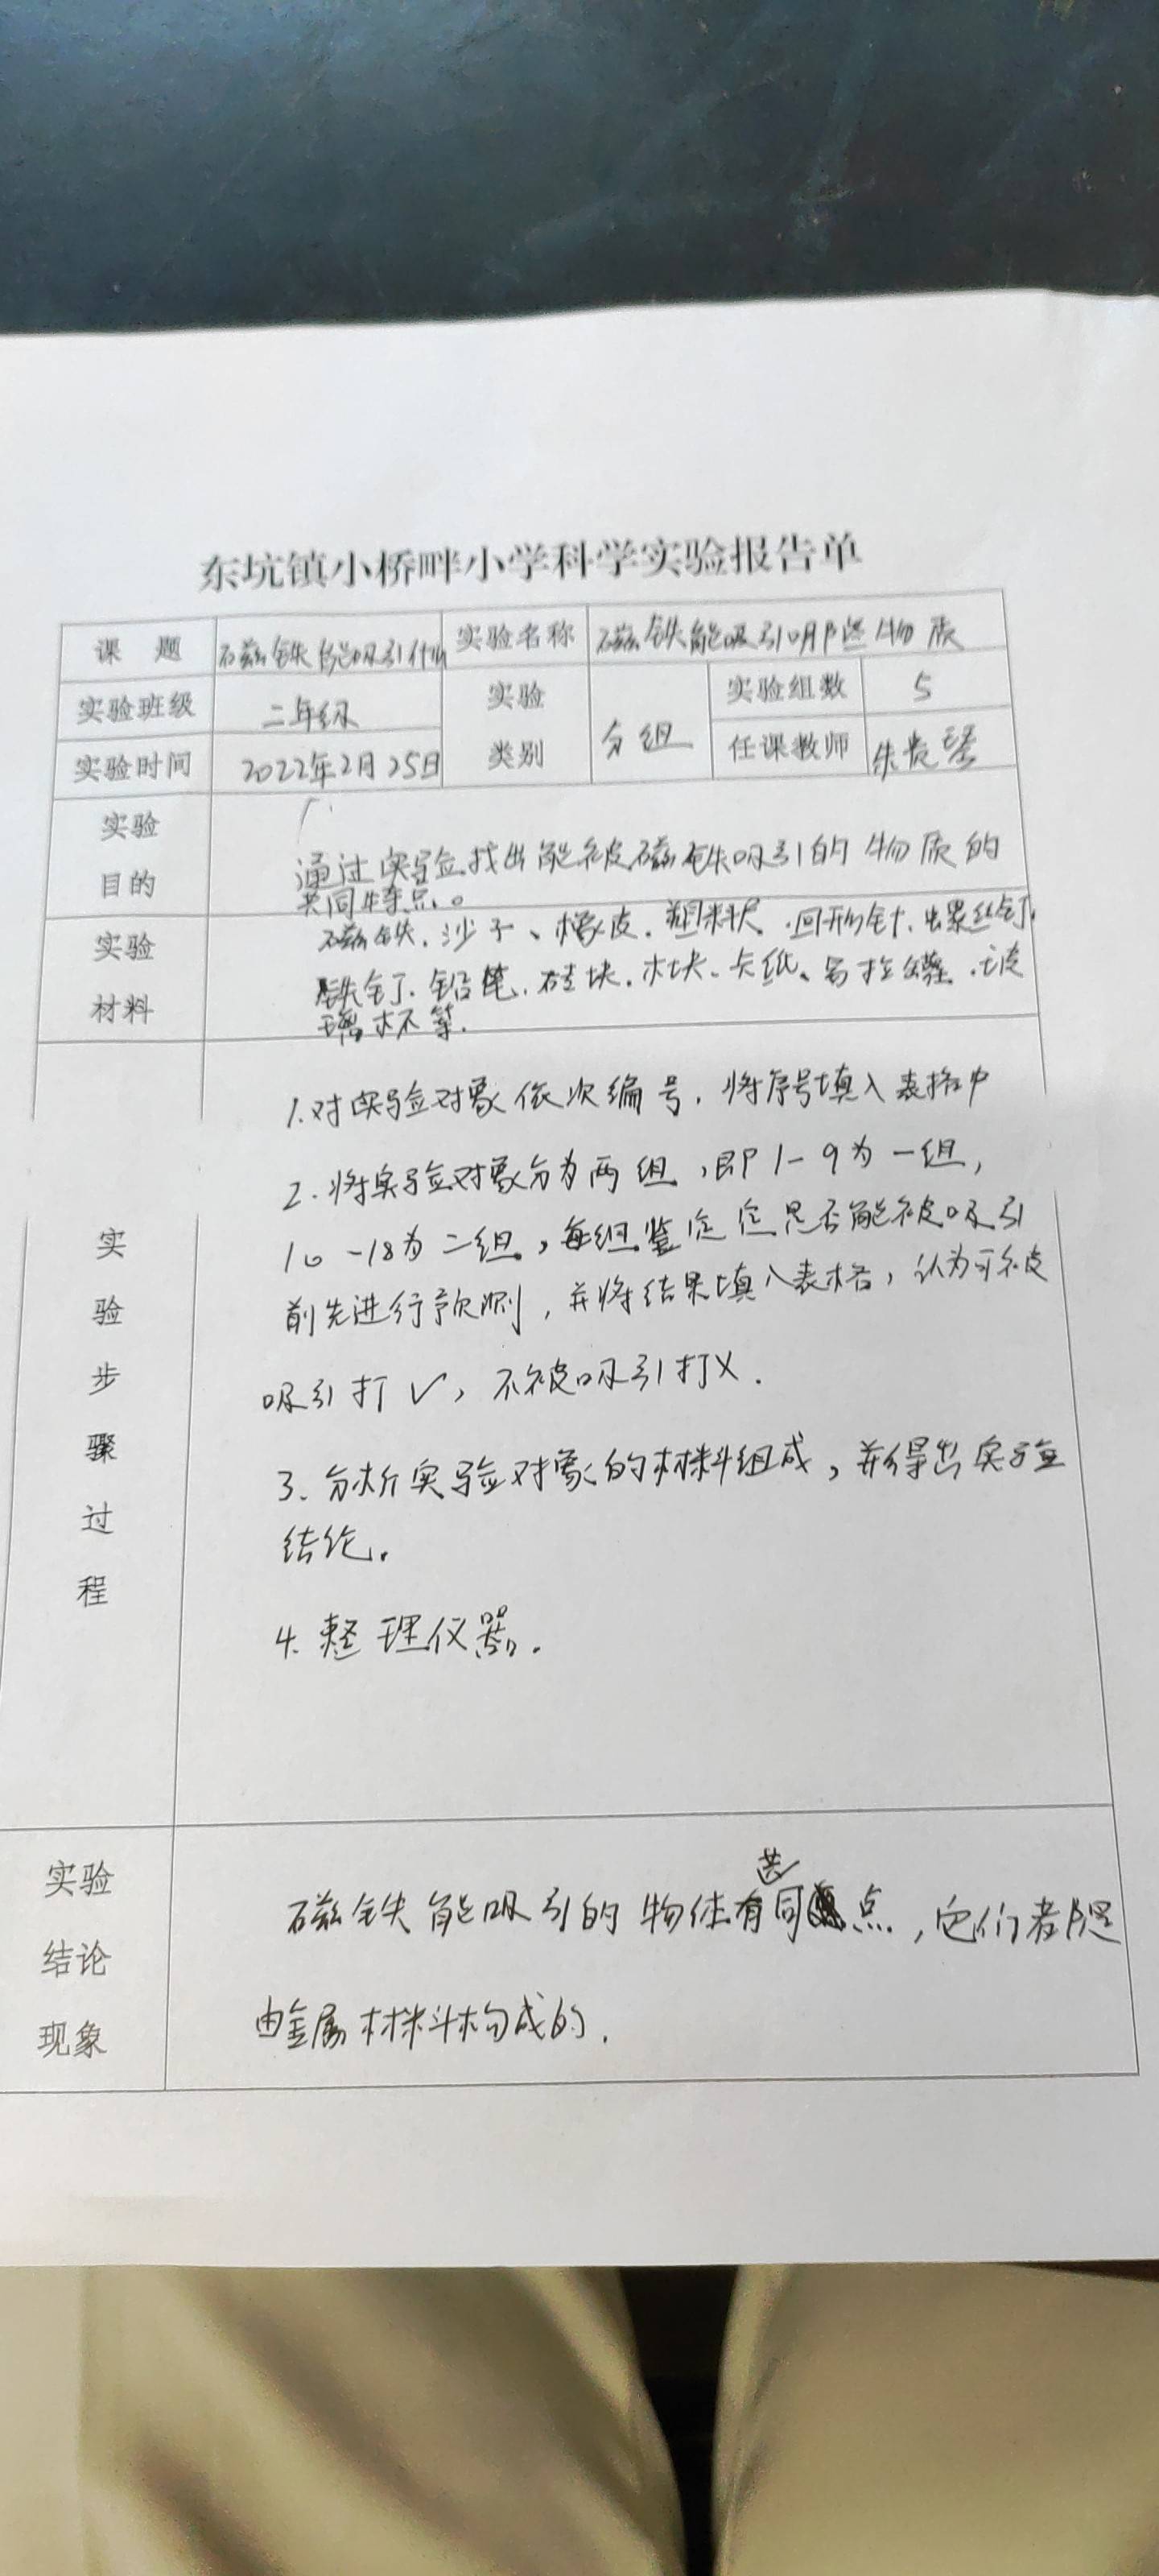 东坑镇小桥畔小学科学实验报告单
课 题 磁铁能吸引什么 实验名称 磁铁能吸引哪些物质
实验班级 二年级 实验 类别 分组 实验组数 5
实验时间 2022年2月25日 任课教师 朱
实验 目的 通过实验找出能被磁铁吸引的物质的
共同特点。
实验 材料 磁铁、沙子、橡皮、塑料尺、回形针、螺丝钉、
铁钉、铅笔、砖块、木块、卡纸、易拉罐、玻
璃杯等.
实验步骤过程
1.对实验对象依次编号,将序号填入表格中
2.将实验对象分为两组,即1-9为一组,
10-18为二组,每组鉴定它是否能被吸引
前先进行预测,并将结果填入表格,认为可被
吸引打√,不被吸引打X.
3.分析实验对象的材料组成,并得出实验
结论.
4.整理仪器.
实验 结论 现象
磁铁能吸引的物体有共同点,它们都是
由金属材料构成的.